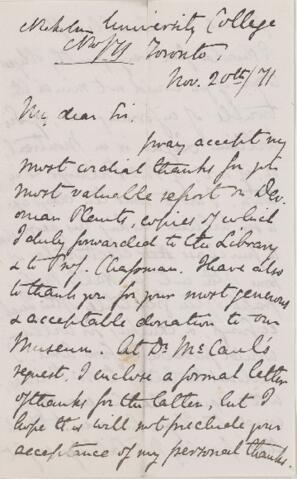 Nicholson University College
Nov/71 Toronto,
Nov. 20th/71
My dear Sir,
pray accept my
most cordial thanks for yr
most valuable report on Dev-
onian Plants, copies of which
I duly forwarded to the Library
& to Prof. Chapman. I have also
to thank you for your most generous
& acceptable donation to our
Museum. At Dr McCaul's
request, I enclose a formal letter
of thanks for the latter, but I
hope this will not preclude your
acceptance of my personal thanks.